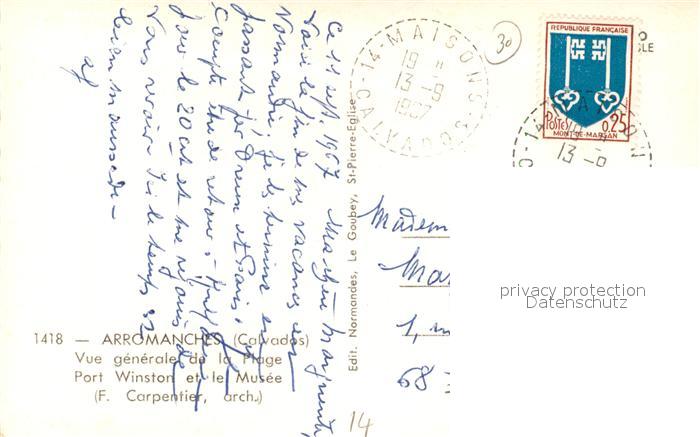 Ce 11 sept. 1967
Voici la fin de mes vacances en
Normandie. Je les termine en
passant par Dreux et Paris. Je
compte être de retour
pour le 20 et me réjouis de
vous revoir si le temps
14 - MAISONS
19 H
13-9
1967
CALVADOS
30
REPUBLIQUE FRANÇAISE
POSTES 0,25
MONT-DE-MARSAN
13-9
Edit. Normandes, Le Goubey, St-Pierre-Eglise
Madem
Ma
1,
68
1418 — ARROMANCHES (Calvados)
Vue générale de la Plage
Port Winston et le Musée
(F. Carpentier, arch.)
14
privacy protection
Datenschutz